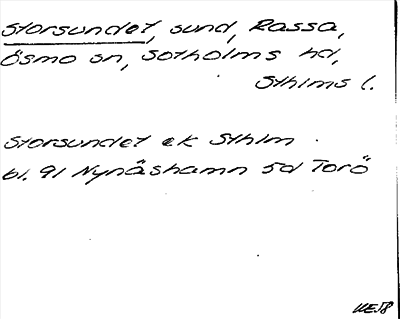 Storsundet, sund, Rassa,
Ösmo sn, Sotholms hd,
Sthlms l.
Storsundet ek Sthlm
bl. 91 Nynäshamn 5d Torö
UE58